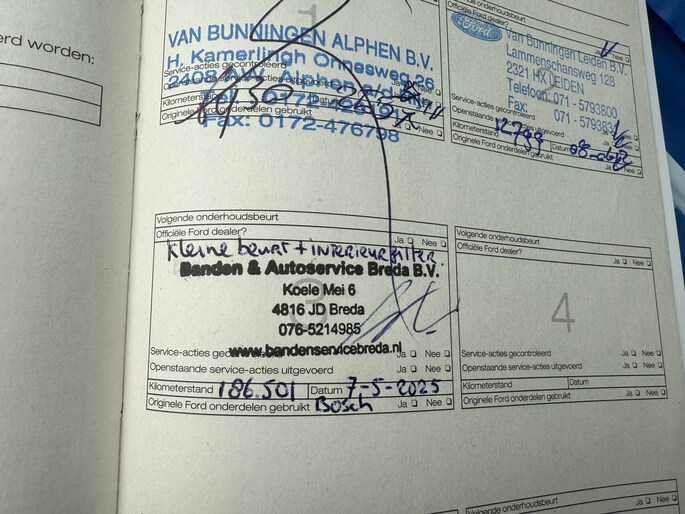 erd worden:
1
VAN BUNNINGEN ALPHEN B.V.
H. Kamerlingh Onnesweg 26
2408
Service-acties gecontroleerd
Openstaande service-acties uitgevoerd
Kilometerstand
Datum
Originele Ford onderdelen gebruikt
Ja Nee
Fax: 0172-476798
Volgende onderhoudsbeurt
Officiële Ford dealer?
Ford
Van Bunningen Leiden B.V.
Lammenschansweg 128
2321 HX LEIDEN
Telefoon: 071 - 5793800
Fax: 071 -
Service-acties gecontroleerd
Openstaande service-acties uitgevoerd
Kilometerstand
Datum
Originele Ford onderdelen gebruikt
Ja Nee
Volgende onderhoudsbeurt
Officiële Ford dealer? Ja Nee
kleine beurt + interieurfilter
Banden & Autoservice Breda B.V.
Koele Mei 6
4816 JD Breda
076-5214985
3
www.bandenservicebreda.nl
Service-acties Ja Nee
Openstaande service-acties uitgevoerd Ja Nee
Kilometerstand 186.501 Datum 7-5-2025
Originele Ford onderdelen gebruikt Bosch Ja Nee
Volgende onderhoudsbeurt
Officiële Ford dealer? Ja Nee
4
Service-acties gecontroleerd Ja Nee
Openstaande service-acties uitgevoerd Ja Nee
Kilometerstand Datum
Originele Ford onderdelen gebruikt Ja Nee
Volgende onderhoudsbeurt